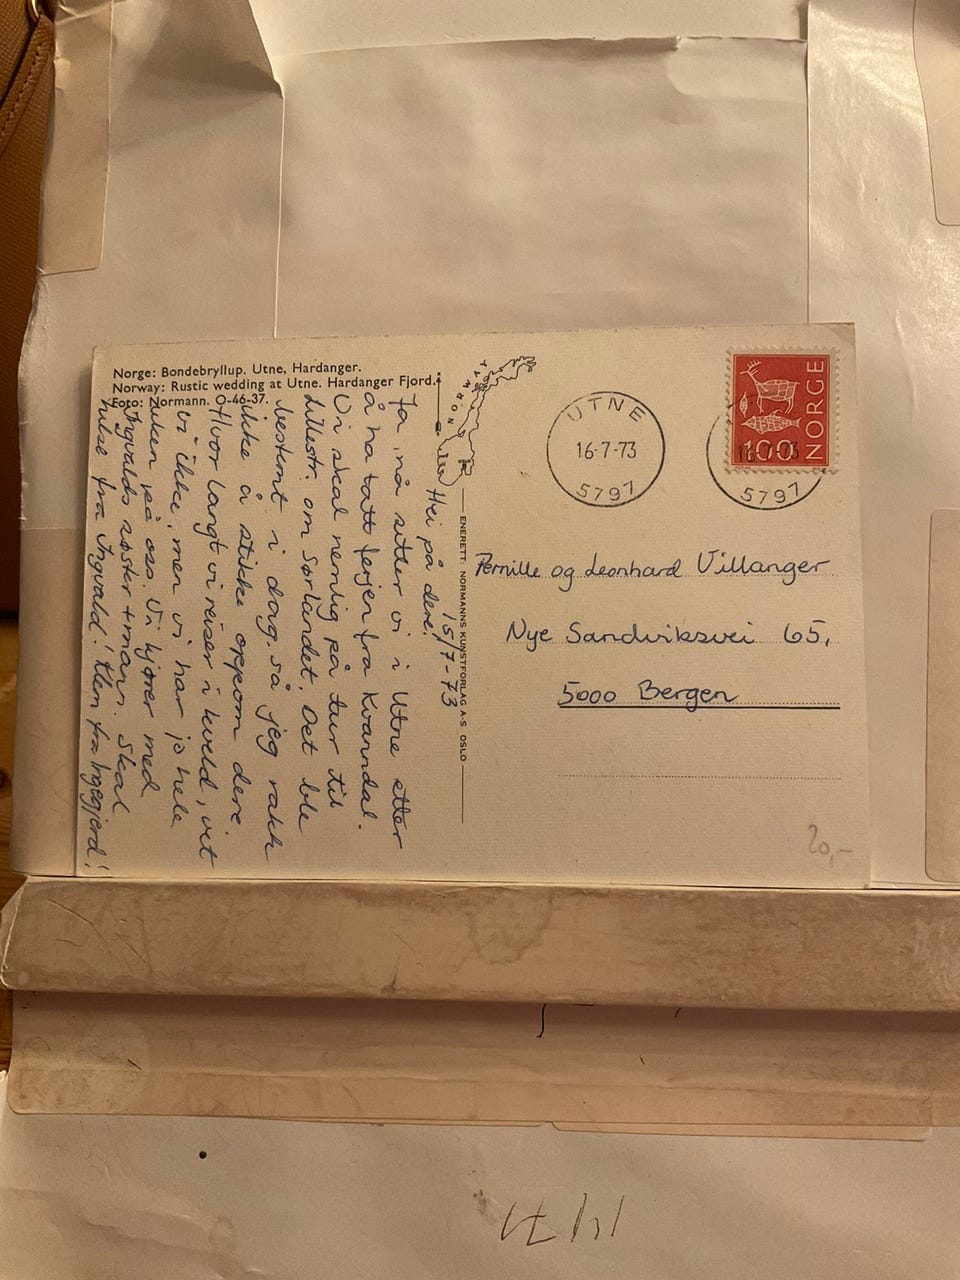 Norge: Bondebryllup. Utne, Hardanger.
Norway: Rustic wedding at Utne. Hardanger Fjord.
Foto: Normann. O-46-37.
NORWAY
15/7-73
Hei på dere!
Ja, nå sitter vi i Utne etter
å ha tatt ferjen fra Kvanndal.
Vi skal nemlig på tur til
Lillestr. om Sørlandet. Det ble
bestemt i dag, så jeg rakk
ikke å stikke oppom dere.
Hvor langt vi reiser i kveld, vet
vi ikke, men vi har jo hele
uken på oss. Vi kjører med
Ingvalds søster + mann. Skal
hilse fra Ingvald! Klem fra Ingegjerd!
ENERETT: NORMANNS KUNSTFORLAG A-S OSLO
UTNE
16-7-73
5797
NORGE
100
16-7-73
5797
Pernille og Leonhard Villanger
Nye Sandviksvei 65,
5000 Bergen
20,-